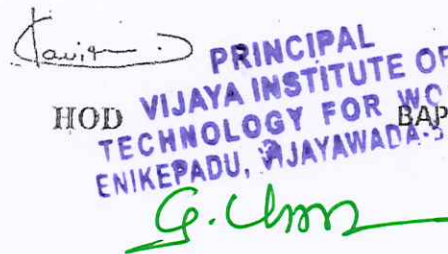 PRINCIPAL
VIJAYA INSTITUTE OF
HOD
TECHNOLOGY FOR WO
BAP
ENIKEPADU, VIJAYAWADA-5